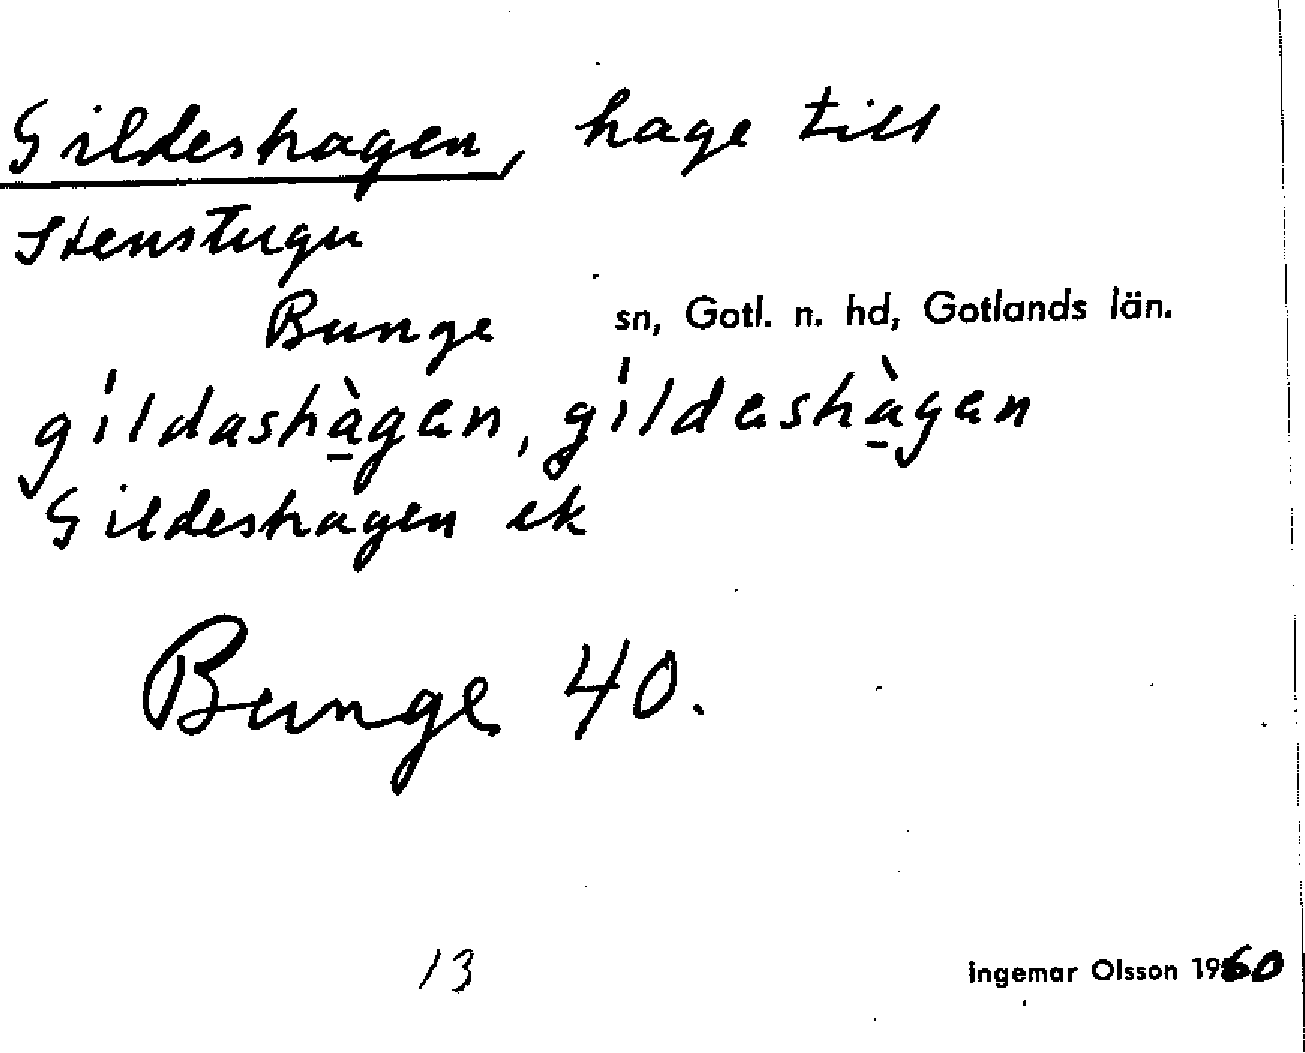 Gildeshagen, hage till
Stenstugu
Bunge sn, Gotl. n. hd, Gotlands län.
gíldashà̠gen, gíldeshà̠gen
Gildeshagen ek
Bunge 40.
13
Ingemar Olsson 1960